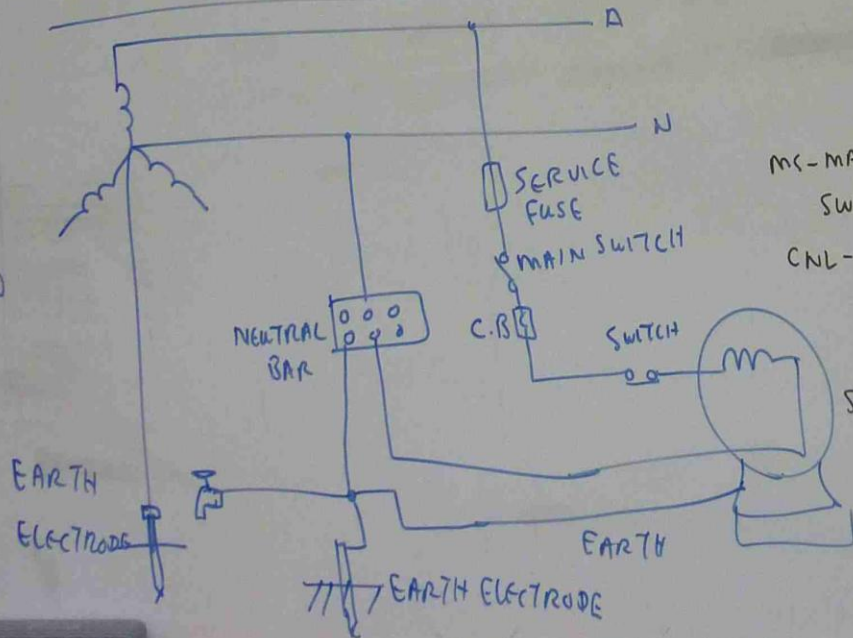 A
N
SERVICE
FUSE
MAIN SWITCH
C.B
SWITCH
NEUTRAL
BAR
EARTH
ELECTRODE
EARTH
EARTH ELECTRODE
CNL-